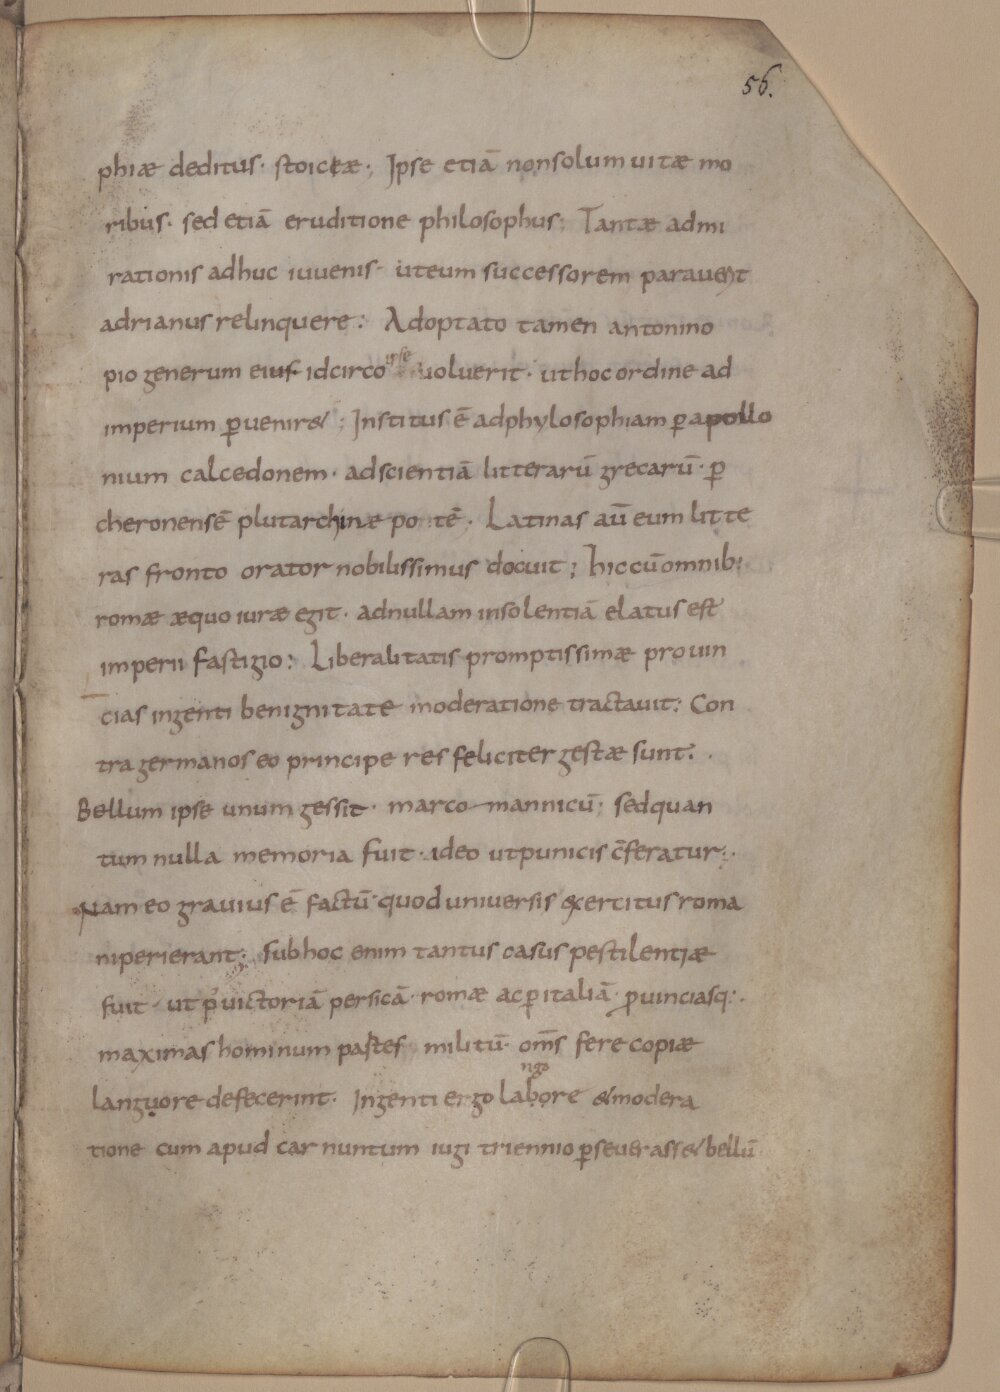 56.
phiæ deditus· stoiceæ·; Ipse etiā non solum uitæ mo
ribus· sed etiā eruditione philosophus; Tantæ admi
rationis adhuc iuuenis· ut eum successorem parauerit
adrianus relinquere: Adoptato tamen antonino
pio generum eius idcirco ipse uoluerit· ut hoc ordine ad
imperium ꝑuenir&; Institus ē ad phylosophiam ꝑ apollo
nium calcedonem· ad scientiā litterarū grecarū· ꝑ
cheronensē plutarchi nepotē· Latinas aū eum litte
ras fronto orator nobilissimus docuit; hic cū omnib:
romæ æquo iuræ egit· ad nullam insolentiā elatus est
imperii fastigio: Liberalitatis promptissimæ prouin
cias ingenti benignitate moderatione tractauit: Con
tra germanos eo principe res feliciter gestæ sunt:·
Bellum ipse unum gessit· marco mannicū; sed quan
tum nulla memoria fuit· ideo ut punicis c̄feratur;·
Nam eo grauius ē factū· quod uniuersis &xercitus roma
ni perierant; sub hoc enim tantus casus pestilentiæ
fuit· ut p̄ uictoriā persicā· romæ ac ꝑ italiā· ꝓuinciasq:·
maximas hominum pastes militū· om̄s fere copiæ
languore defecerint· Ingenti ergo labore & modera
ngo
tione cum apud carnuntum iugi triennio ꝑseuerass& bellū